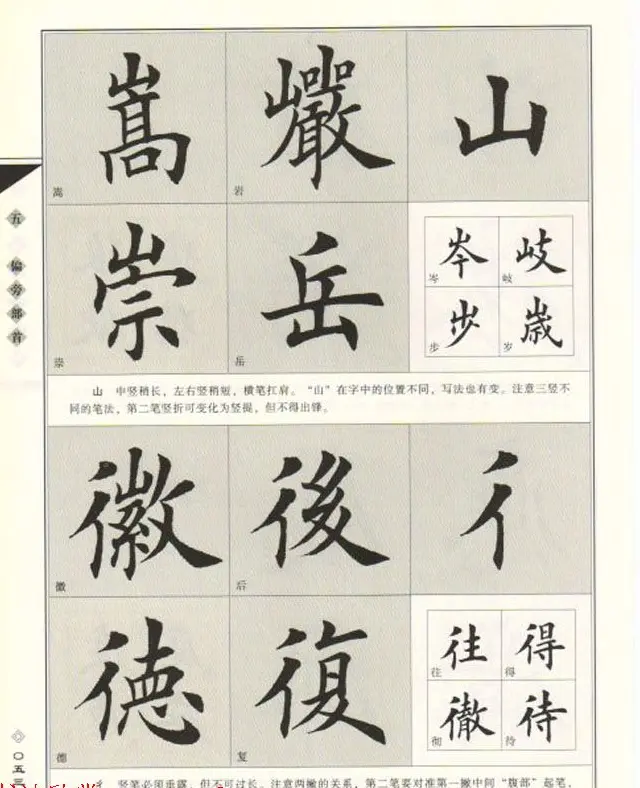 嵩 巖 山
嵩 岩
崇 岳
崇 岳
岑 岐
岑 岐
步 歲
步 岁
山 中竖稍长，左右竖稍短，横笔扛肩。“山”在字中的位置不同，写法也有变。注意三竖不
同的笔法，第二笔竖折可变化为竖提，但不得出锋。
徽 後 彳
徽 后
德 復
德 复
往 得
往 得
徹 待
彻 待
彳 竖笔必须垂露，但不可过长。注意两撇的关系，第二笔要对准第一撇中间“腹部”起笔，
五 偏旁部首
〇五三